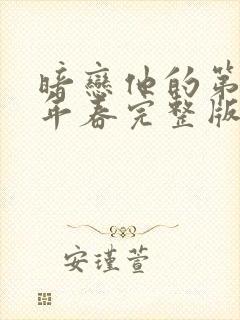 暗戀他的第
年春完整版
安瑾萱